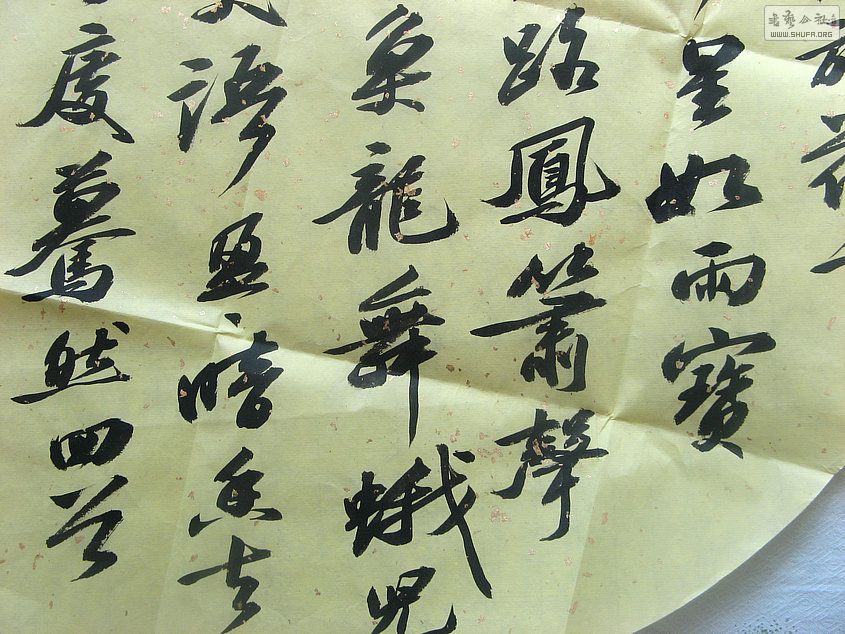 放花千
星如雨寶
路鳳簫聲
魚龍舞蛾兒
語盈、暗香去
度驀然回首
书艺公社
WWW.SHUFA.ORG